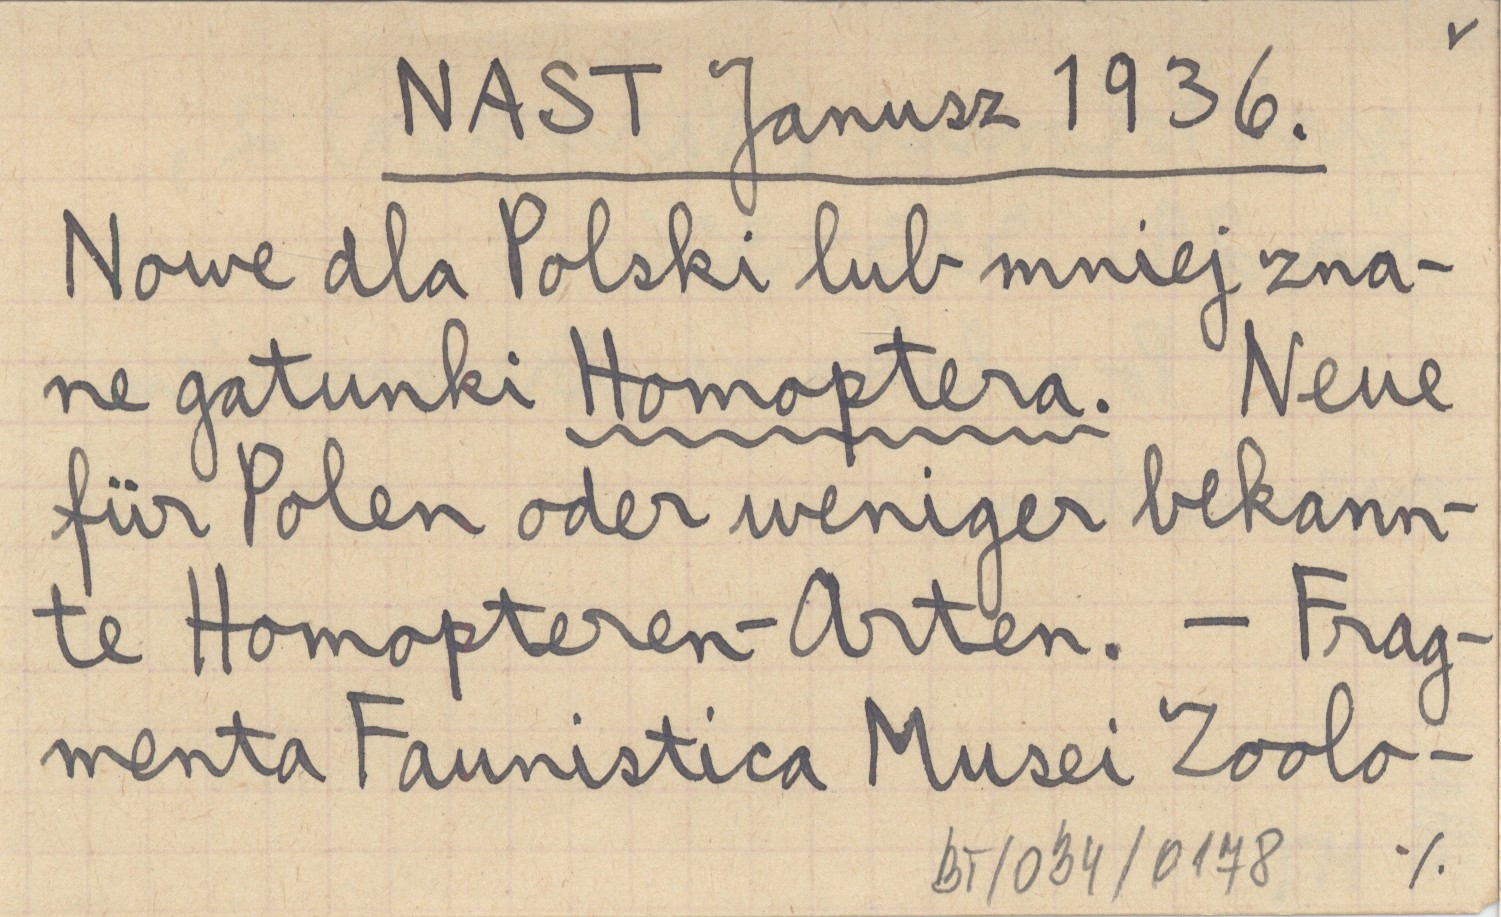 NAST Janusz 1936.
Nowe dla Polski lub mniej zna-
ne gatunki Homoptera. Neue
für Polen oder weniger bekann-
te Homopteren-Arten. – Frag-
menta Faunistica Musei Zoolo-
BT/034/0178 ·/.